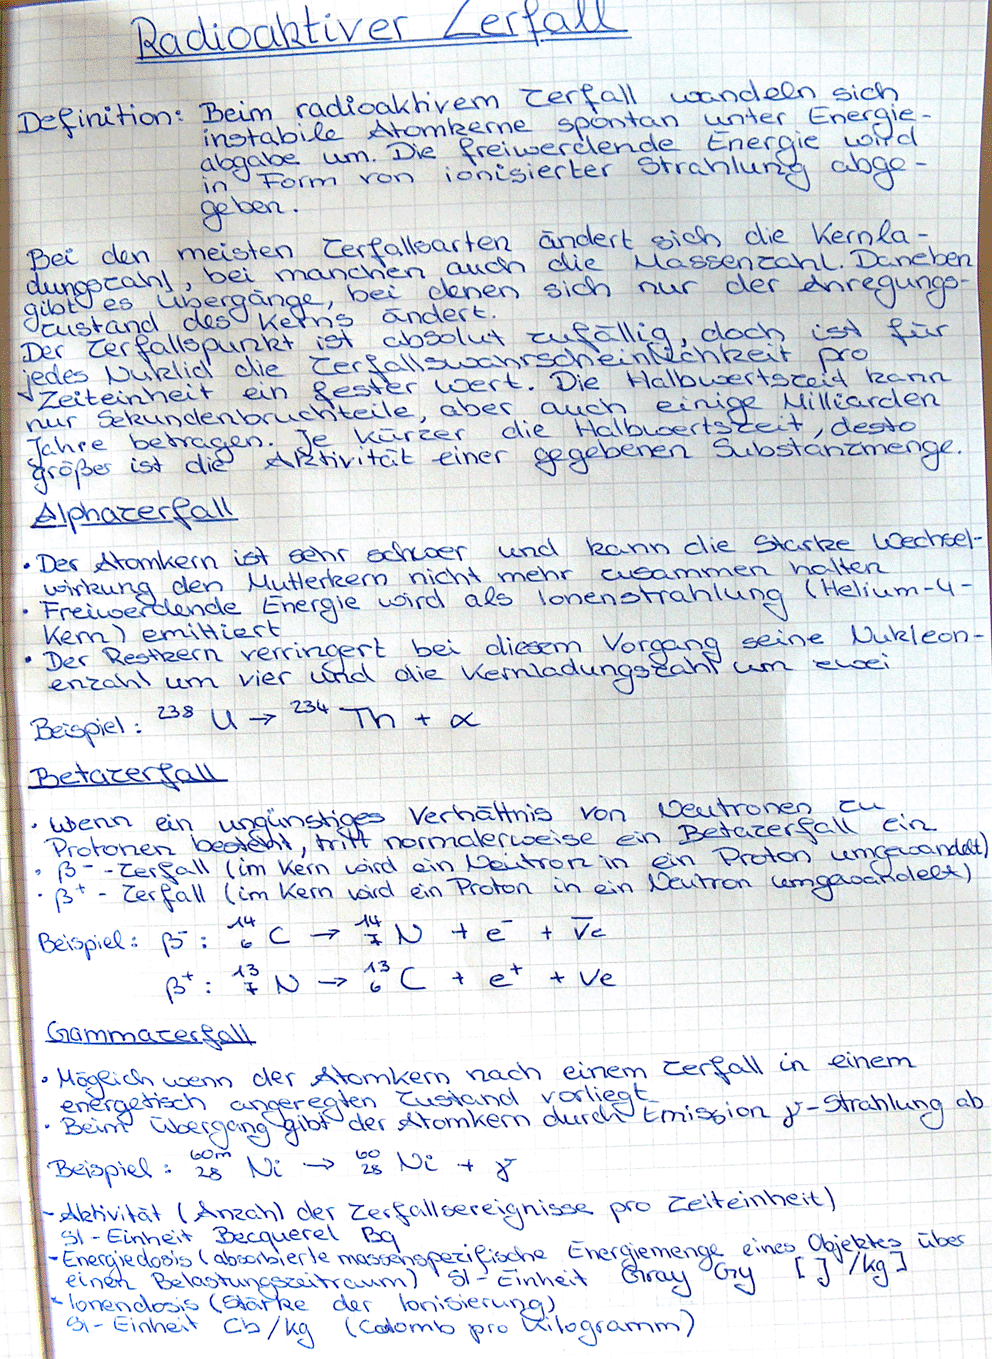 Radioaktiver Zerfall
Definition: Beim radioaktivem Zerfall wandeln sich
instabile Atomkerne spontan unter Energie-
abgabe um. Die freiwerdende Energie wird
in Form von ionisierter Strahlung abge-
geben.
Bei den meisten Zerfallsarten ändert sich die Kernla-
dungszahl, bei manchen auch die Massenzahl. Daneben
gibt es Übergänge, bei denen sich nur der Anregungs-
zustand des Kerns ändert.
Der Zerfallspunkt ist absolut zufällig, doch ist für
jedes Nuklid die Zerfallswahrscheinlichkeit pro
Zeiteinheit ein fester Wert. Die Halbwertszeit kann
nur Sekundenbruchteile, aber auch einige Milliarden
Jahre betragen. Je kürzer die Halbwertszeit, desto
größer ist die Aktivität einer gegebenen Substanzmenge.
Alphazerfall
• Der Atomkern ist sehr schwer und kann die Starke Wechsel-
wirkung den Mutterkern nicht mehr zusammen halten
• Freiwerdende Energie wird als Ionenstrahlung (Helium-4-
Kern) emittiert
• Der Restkern verringert bei diesem Vorgang seine Nukleon-
enzahl um vier und die Kernladungszahl um zwei
Beispiel: ²³⁸U → ²³⁴Th + α
Betazerfall
• Wenn ein ungünstiges Verhältnis von Neutronen zu
Protonen besteht, tritt normalerweise ein Betazerfall ein
• β⁻-Zerfall (im Kern wird ein Neutron in ein Proton umgewandelt)
• β⁺-Zerfall (im Kern wird ein Proton in ein Neutron umgewandelt)
Beispiel: β⁻: ¹⁴₆C → ¹⁴₇N + e⁻ + ν̅e
β⁺: ¹³₇N → ¹³₆C + e⁺ + νe
Gammazerfall
• Möglich wenn der Atomkern nach einem Zerfall in einem
energetisch angeregten Zustand vorliegt
• Beim Übergang gibt der Atomkern durch Emission γ-Strahlung ab
Beispiel: ⁶⁰ᵐ₂₈Ni → ⁶⁰₂₈Ni + γ
- Aktivität (Anzahl der Zerfallsereignisse pro Zeiteinheit)
SI-Einheit Becquerel Bq
- Energiedosis (absorbierte massenspezifische Energiemenge eines Objektes über
einen Belastungszeitraum) SI-Einheit Gray Gy [J/kg]
- Ionendosis (Stärke der Ionisierung)
SI-Einheit Cb/kg (Colomb pro Kilogramm)